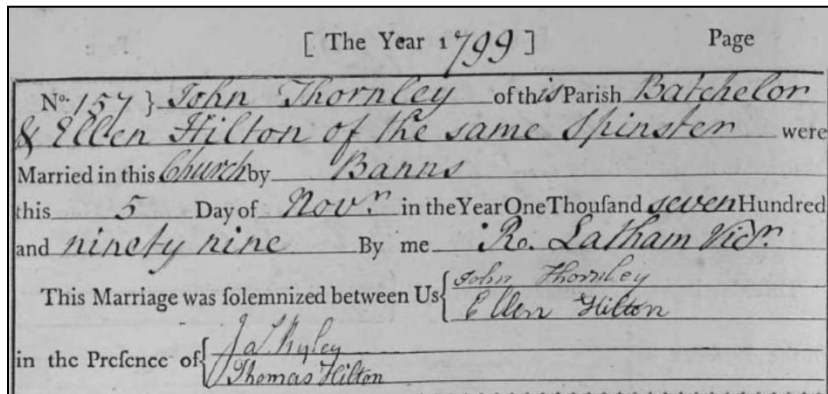 [ The Year 1799 ] Page
No. 157 } John Thornley of this Parish Batchelor
& Ellen Hilton of the same Spinster were
Married in this Church by Banns
this 5 Day of Novr in the Year One Thouſand seven Hundred
and ninety nine By me R. Latham Vicr.
This Marriage was ſolemnized between Us { John Thornley
Ellen Hilton
in the Preſence of { Jas Ryley
Thomas Hilton